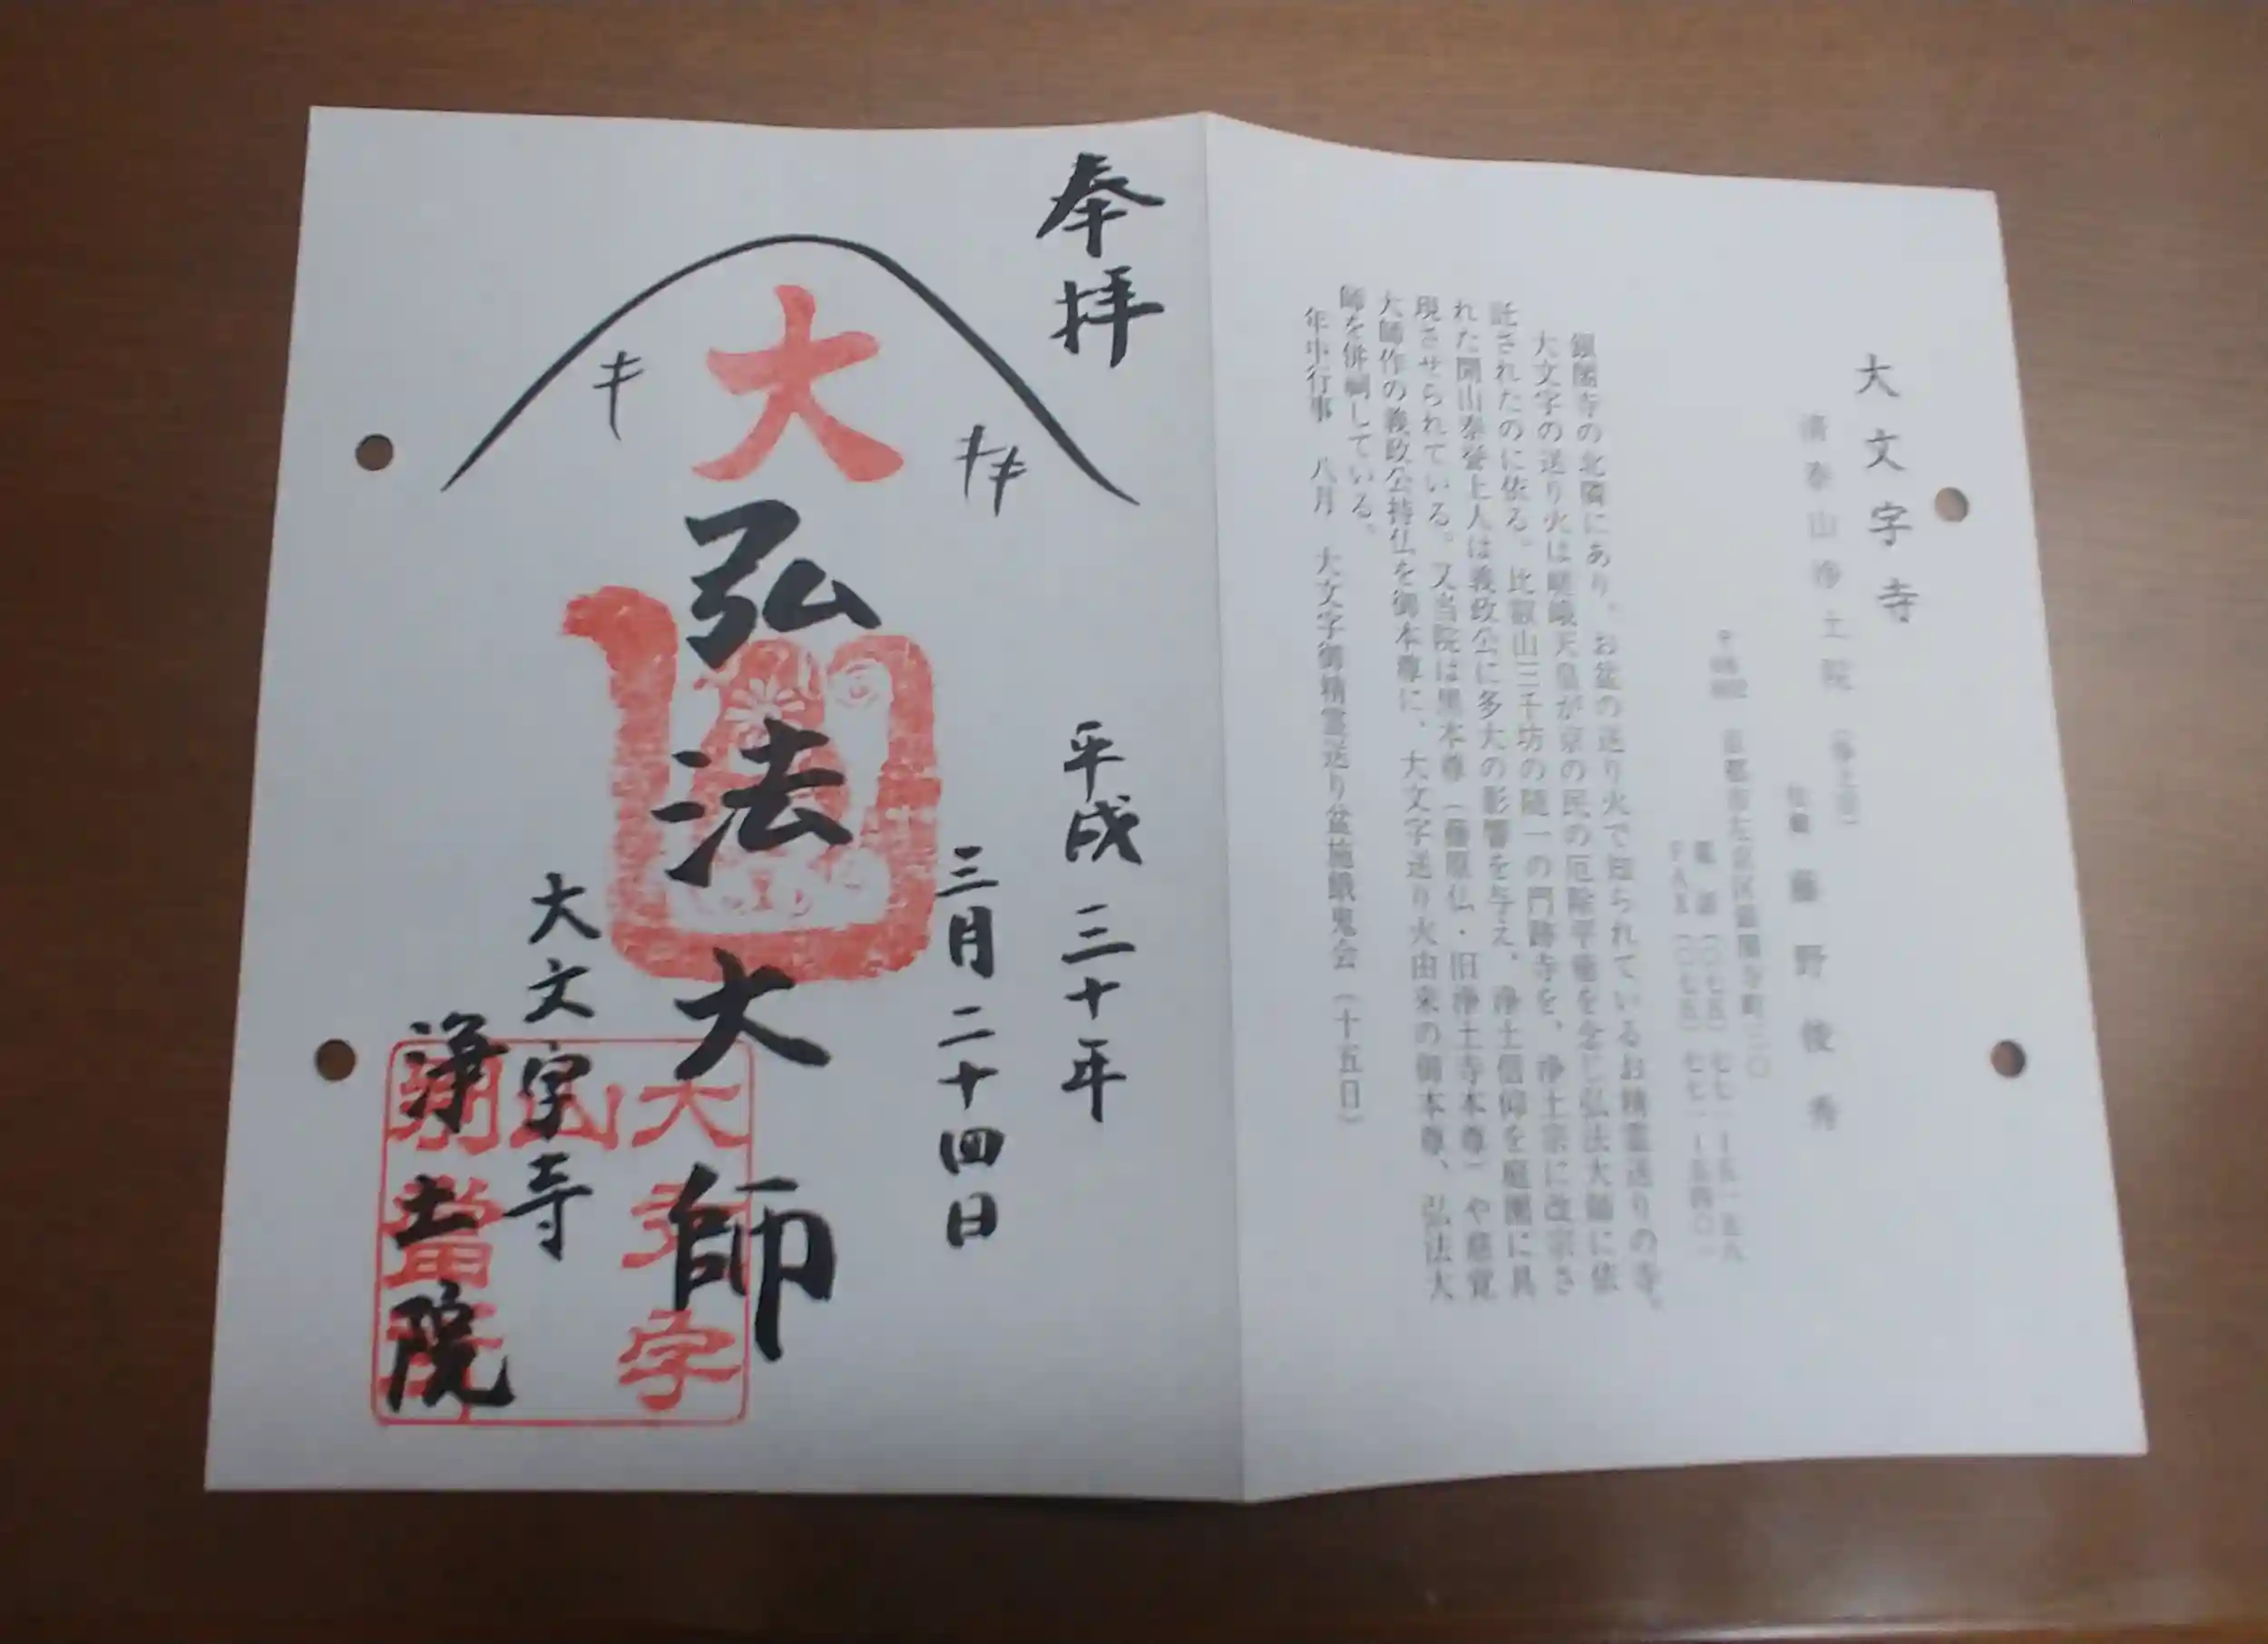 大文字寺
清泰山浄土院（浄土宗）
住職 藤野俊秀
京都市左京区銀閣寺町三〇
電話（〇七五）七七一
FAX（〇七五）七七一
銀閣寺の北隣にあり、お盆の送り火で知られているお精霊送りの寺。
大文字の送り火は嵯峨天皇が京の民の厄除平癒を念じ弘法大師に依
託されたのに依る。比叡山三千坊の随一の門跡寺を、浄土宗に改宗さ
れた開山泰誉上人は義政公に多大の影響を与え、浄土信仰を庭園に具
現させられている。又当院は黒本尊（藤原仏・旧浄土寺本尊）や慈覚
大師作の義政公持仏を御本尊に、大文字送り火由来の御本尊、弘法大
師を併祠している。
年中行事 八月 大文字御精霊送り盆施餓鬼会（十五日）
奉拝
平成三十年
三月二十四日
大
弘法大師
大文字寺
浄土院
大文字
山